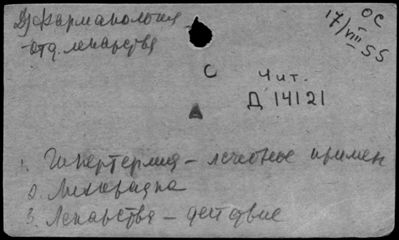 Фармакология
отд. лекарства
ОС
17/VIII 55
С
Чит.
Д 14121
1. Гипертермия – лечебное примен
2. Лихорадка
3. Лекарства – действие